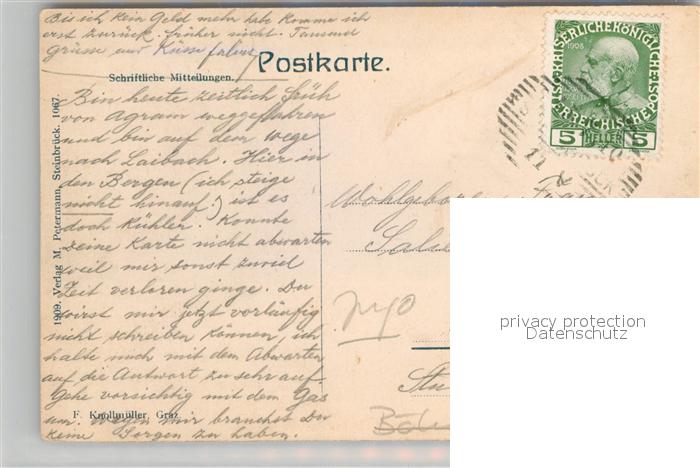 Bis ich kein Geld mehr habe komme ich
erst zurück. früher nicht. Tausend
Grüsse und Küsse
Postkarte.
Schriftliche Mitteilungen.
Bin heute zeitlich früh
von Agram weggefahren
und bin auf dem Wege
nach Laibach. Hier in
den Bergen (ich steige
nicht hinauf!) ist es
doch kühler. Konnte
Deine Karte nicht abwarten
weil mir sonst zuviel
Zeit verloren ginge. Du
wirst mir jetzt vorläufig
nicht schreiben können, ich
halte mich mit dem Abwarten
auf die Antwort zu sehr auf.
Gehe vorsichtig mit dem Gas
um. Wegen mir brauchst Du
keine Sorgen zu haben.
F. Knollmüller, Graz.
1909. Verlag M. Petermann, Steinbrück. 1067.
KAISERLICHEKÖNIGLICHE
1908
ÖSTERREICHISCHE POST
5 HELLER 5
Wohlgebor
Frau
privacy protection
Datenschutz